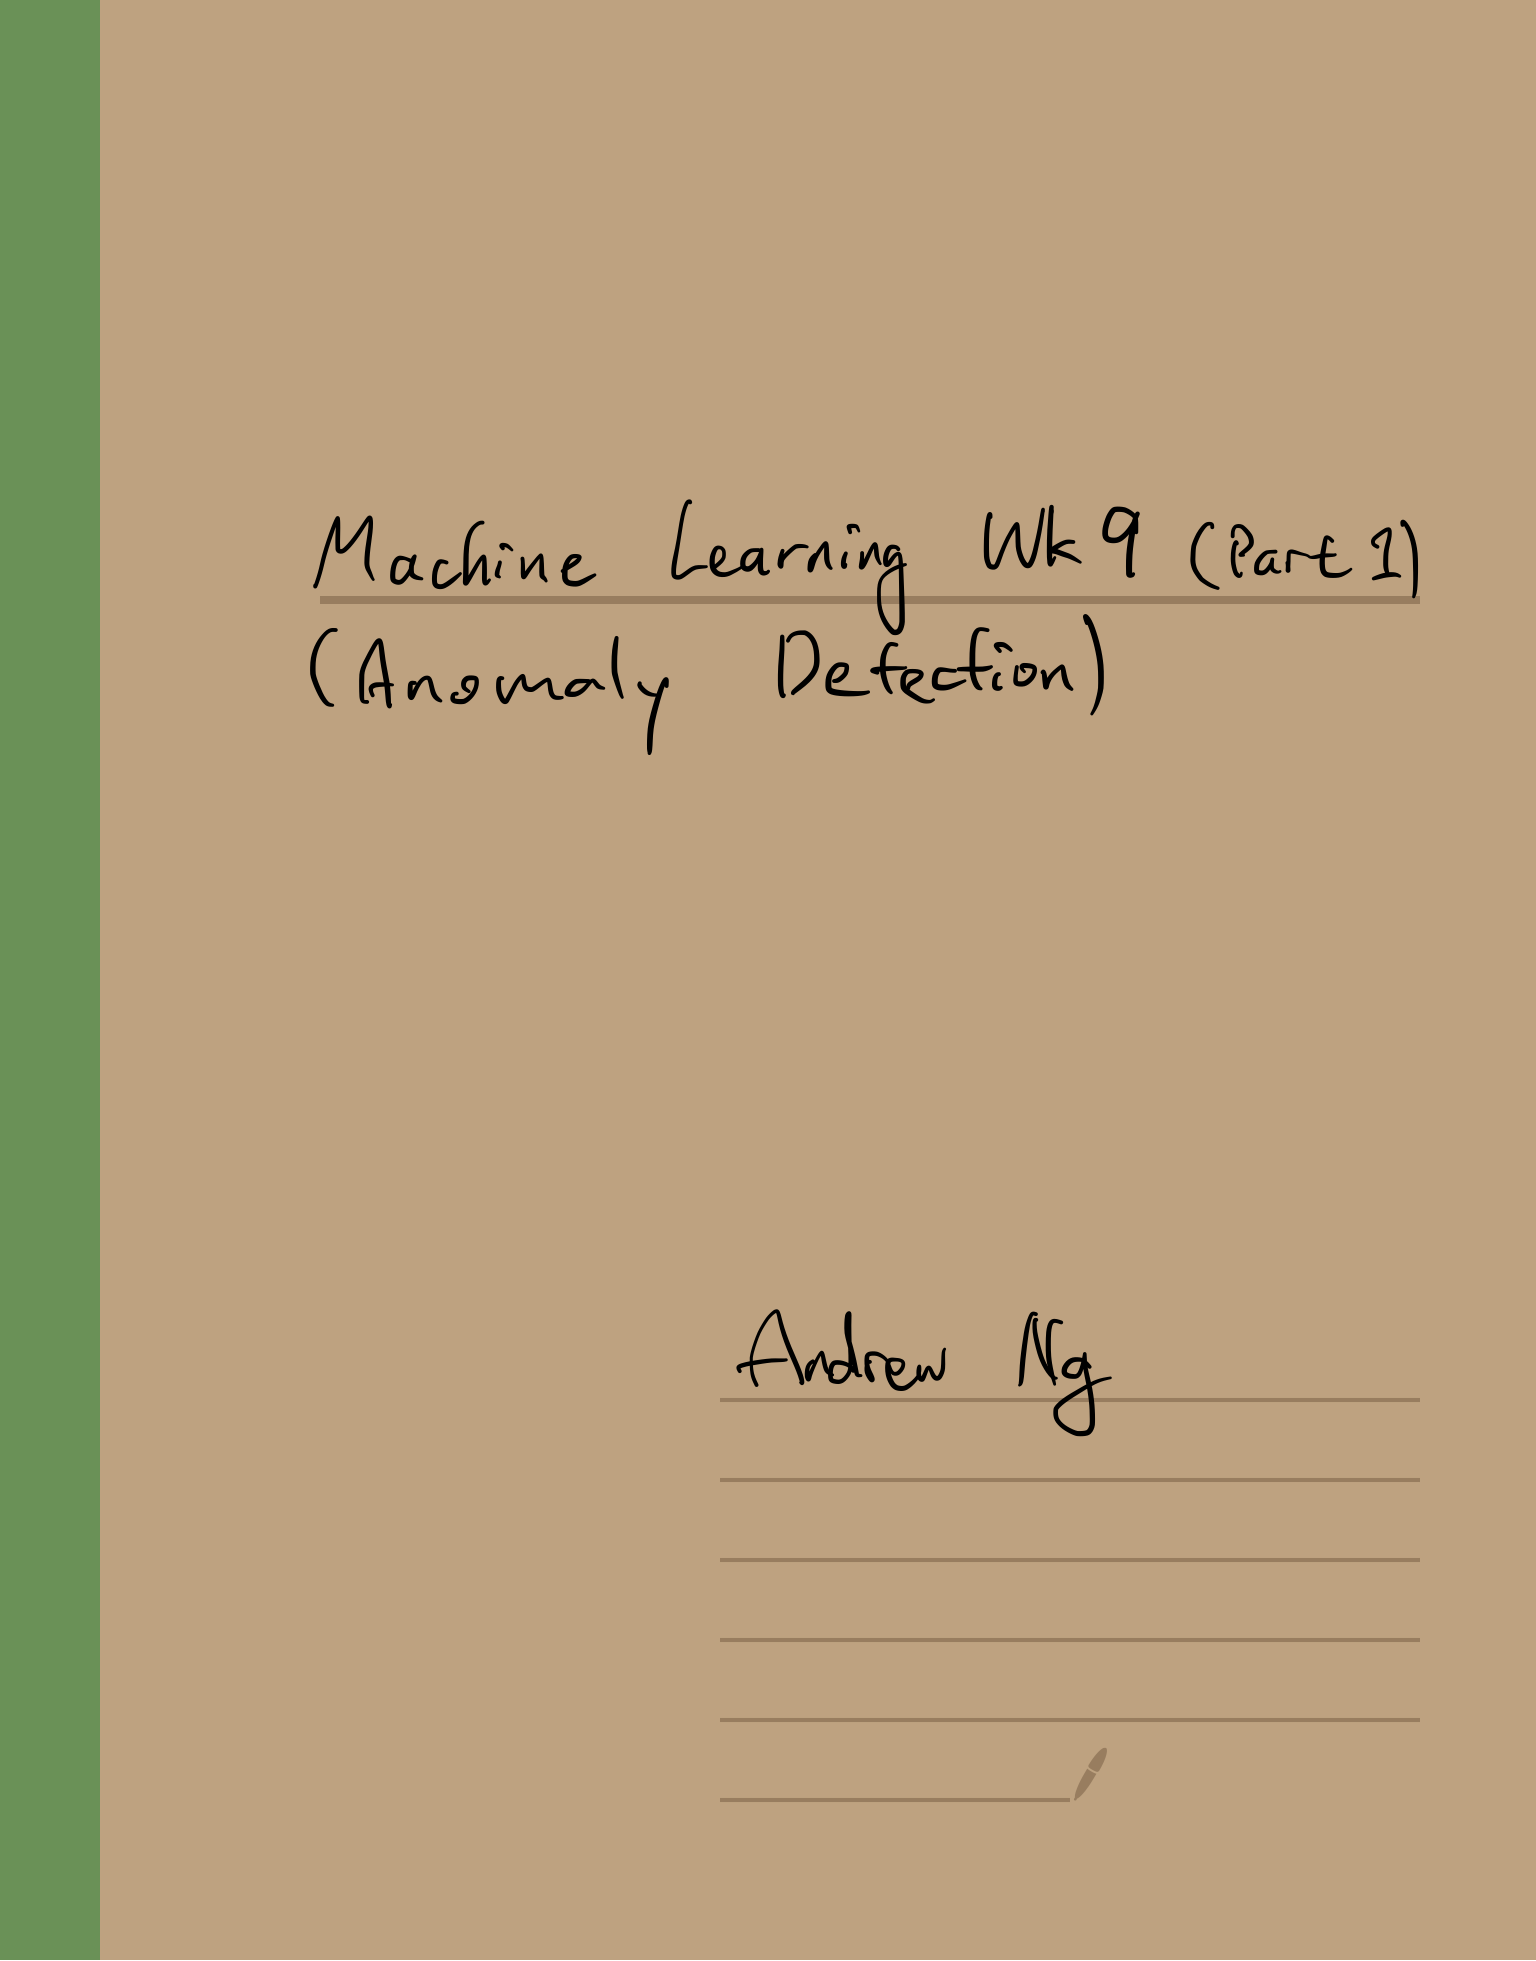 Machine Learning Wk 9 (Part 1)
(Anomaly Detection)
Andrew Ng